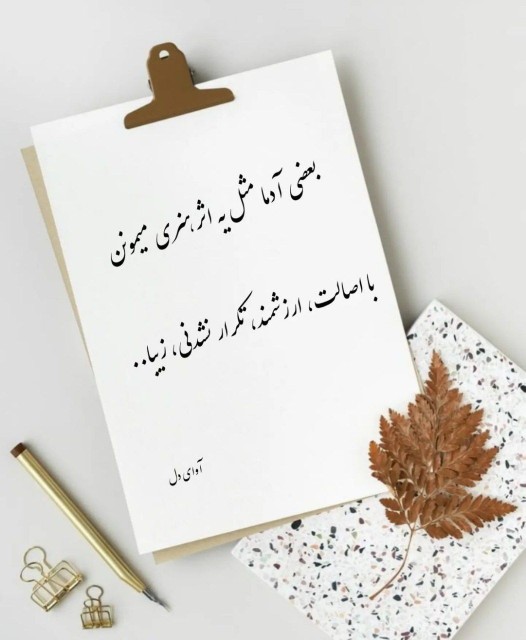 بعضی آدما مثل یه اثر هنری میمونن
با اصالت، ارزشمند، تکرار نشدنی، زیبا..
آوای دل